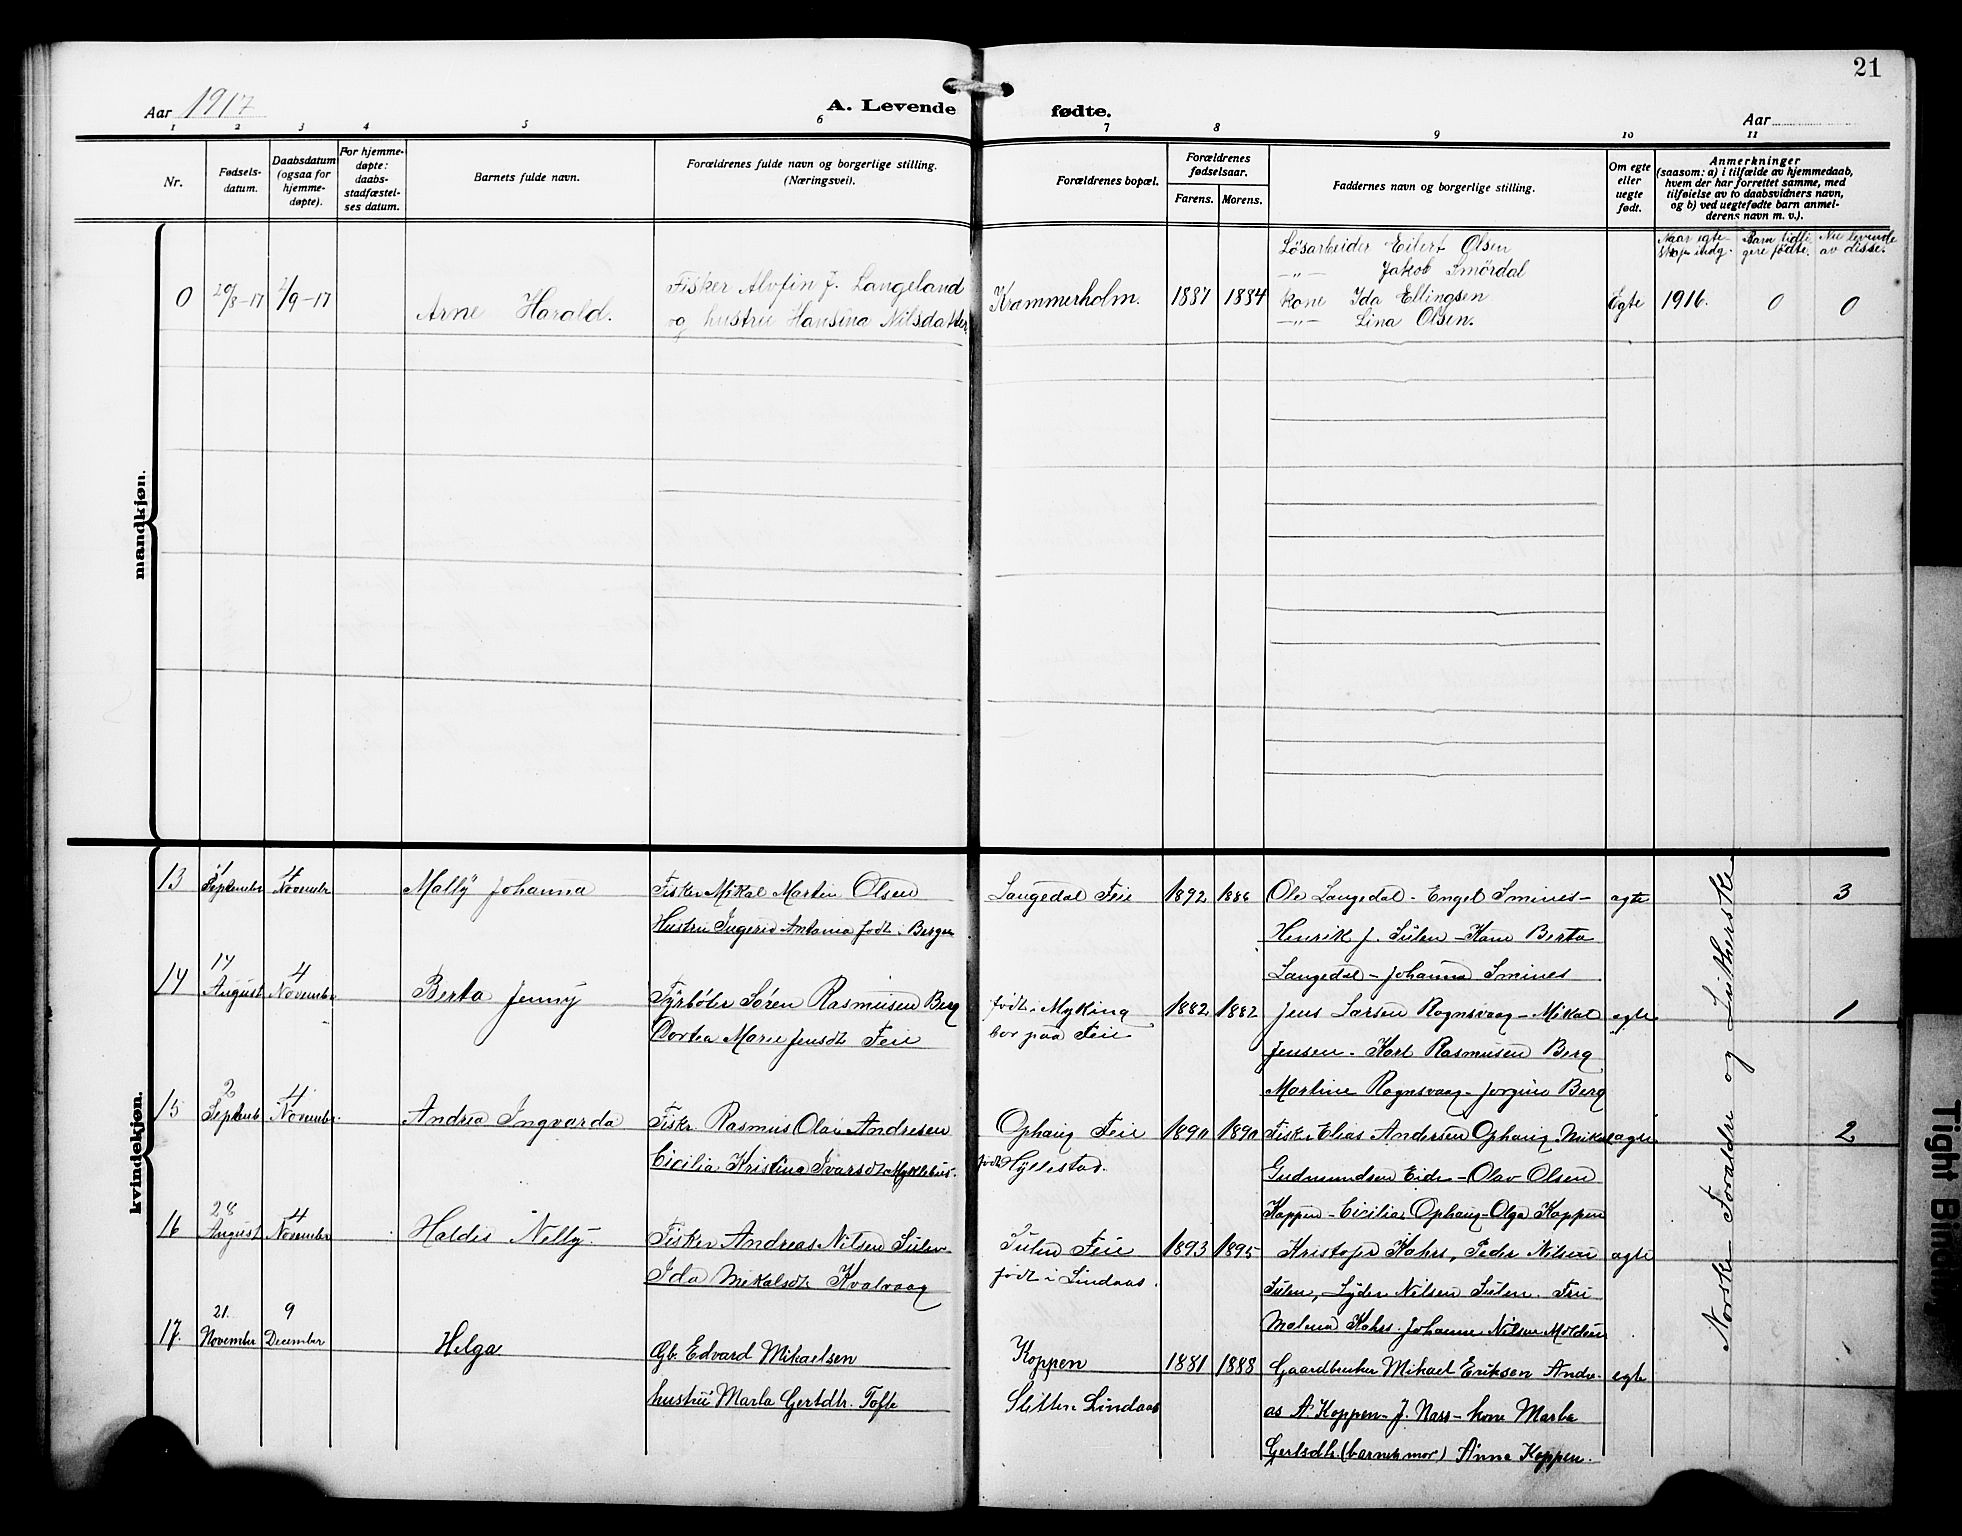 21
Aar 1917
A. Levende fødte.
Aar
1 2 3 4 5 6 7 8 9 10 11
Nr.
Fødsels-
datum.
Daabsdatum
(ogsaa for
hjemme-
døpte).
For hjemme-
døpte:
daabs-
stadfæstel-
ses datum.
Barnets fulde navn.
Forældrenes fulde navn og borgerlige stilling.
(Næringsvei).
Forældrenes bopæl.
Forældrenes
fødselsaar.
Farens. Morens.
Faddernes navn og borgerlige stilling.
Om egte
eller
uegte
født.
Anmerkninger
(saasom: a) i tilfælde av hjemmedaab,
hvem der har forrettet samme, med
tilføielse av to daabsvidners navn,
og b) ved uegtefødte barn anmel-
derens navn m. v.).
Naar egte-
skap indg.
Barn tidli
gere fødte.
Nu levende
av disse.
mandkjøn.
0 20/8-17 2/9-17
Arne Harald.
Fisker Alvfin J. Langeland
og hustru Hansina Nilsdatter
Krammerholm. 1887 1884
Løsarbeider Eilert Olsen
-"- Jakob Smørdal
kone Ida Ellingsen
-"- Lina Olsen.
Egte 1916. 0 0
kvindekjøn.
13 September 4 November
Mally Johanna
Fisker Mikal Martin Olsen
Hustru Ingerid Antonia født i Bergen
Langedal Feie 1892 1886
Ole Langedal - Engel Smines -
Henrik J. Sulen - Kone Berta
Langedal - Johanna Smines
egte 3
14 17 August 4 November
Berta Jenny
Fyrbøter Søren Rasmusen Berg
Dortea Marie Jensdt Feie
født i Myking
bor paa Feie
1882 1882
Jens Larsen Rognsvaag - Mikal
Jensen - Karl Rasmusen Berg
Martine Rognsvaag - Jorgine Berg
egte 1
15 2 Septemb 4 November
Andrea Ingvarda
Fisker Rasmus Olai Andresen
Cicilia Kristina Ivarsdt Myklebust.
Ophaug Feie
født Hyllestad.
1890 1890
Fisker Elias Andersen Ophaug Mikal
Gudmundsen Eide - Olav Olsen
Koppen - Cicilia Ophaug - Olga Koppen
egte 2
16 28 August 4 November
Haldis Nelly
Fisker Andreas Nilsen Sulen
Ida Mikalsdt Kvalvaag
Sulen Feie
født i Lindaas.
1893 1895
Kristofer Kahrs, Peder Nilsen
Sulen, Lyder Nilsen Sulen. Fru
Malena Kahrs. Johanne Nilsen Molden
egte
17. 21. November 9 December
Helga
Gb. Edvard Mikaelsen
hustru Marta Gertdtr. Tofte
Koppen
Sletten Lindaas
1881 1888
Gaardbruker Mikael Eriksen Andre-
as A. Koppen - J. Næss - kone Marta
Gertsdtr. (barnets mor) Anna Koppen.
egte
Norske Forældre og Lutherske
Tight Binding